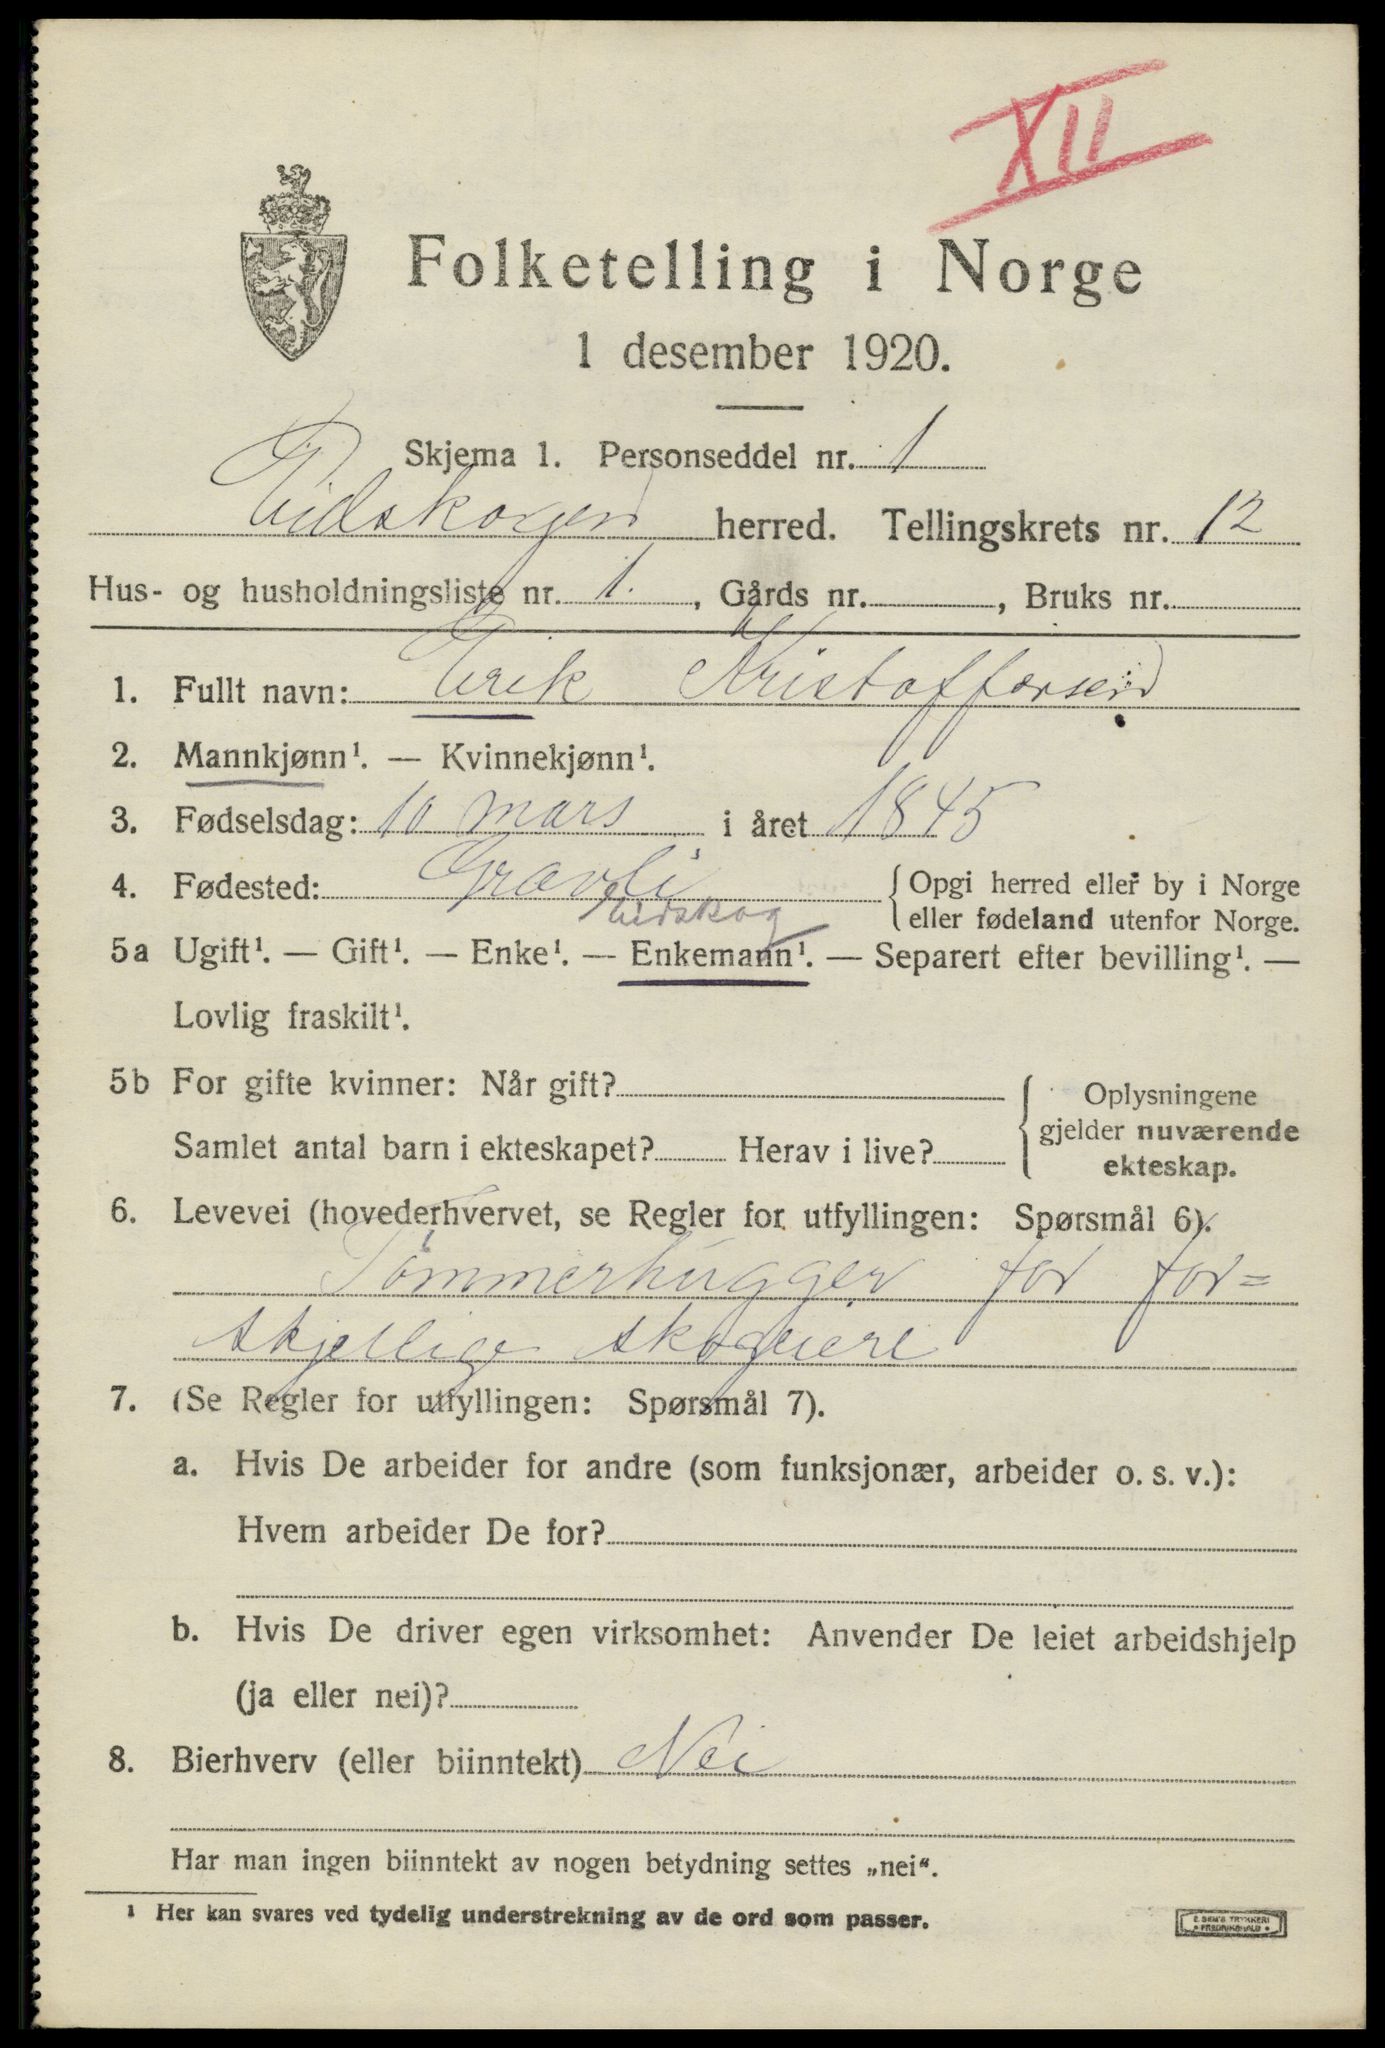 XII
Folketelling i Norge
1 desember 1920.
Skjema 1. Personseddel nr. 1
Eidskogen herred. Tellingskrets nr. 12
Hus- og husholdningsliste nr. 1. , Gårds nr. , Bruks nr.
1. Fullt navn: Erik Kristoffersen
2. Mannkjønn¹. — Kvinnekjønn¹.
3. Fødselsdag: 10 mars i året 1845
4. Fødested: Gravli { Opgi herred eller by i Norge
Eidskog eller fødeland utenfor Norge.
5a Ugift¹. — Gift¹. — Enke¹. — Enkemann¹. — Separert efter bevilling¹. —
Lovlig fraskilt¹.
5b For gifte kvinner: Når gift? { Oplysningene
gjelder nuværende
Samlet antal barn i ekteskapet? Herav i live? ekteskap.
6. Levevei (hovederhvervet, se Regler for utfyllingen: Spørsmål 6).
Tømmerhugger for for=
skjellige skogeiere
7. (Se Regler for utfyllingen: Spørsmål 7).
a. Hvis De arbeider for andre (som funksjonær, arbeider o. s. v.):
Hvem arbeider De for?
b. Hvis De driver egen virksomhet: Anvender De leiet arbeidshjelp
(ja eller nei)?
8. Bierhverv (eller biinntekt) Nei
Har man ingen biinntekt av nogen betydning settes „nei“.
¹ Her kan svares ved tydelig understrekning av de ord som passer.
E. SEM'S TRYKKERI
• FREDRIKSHALD •